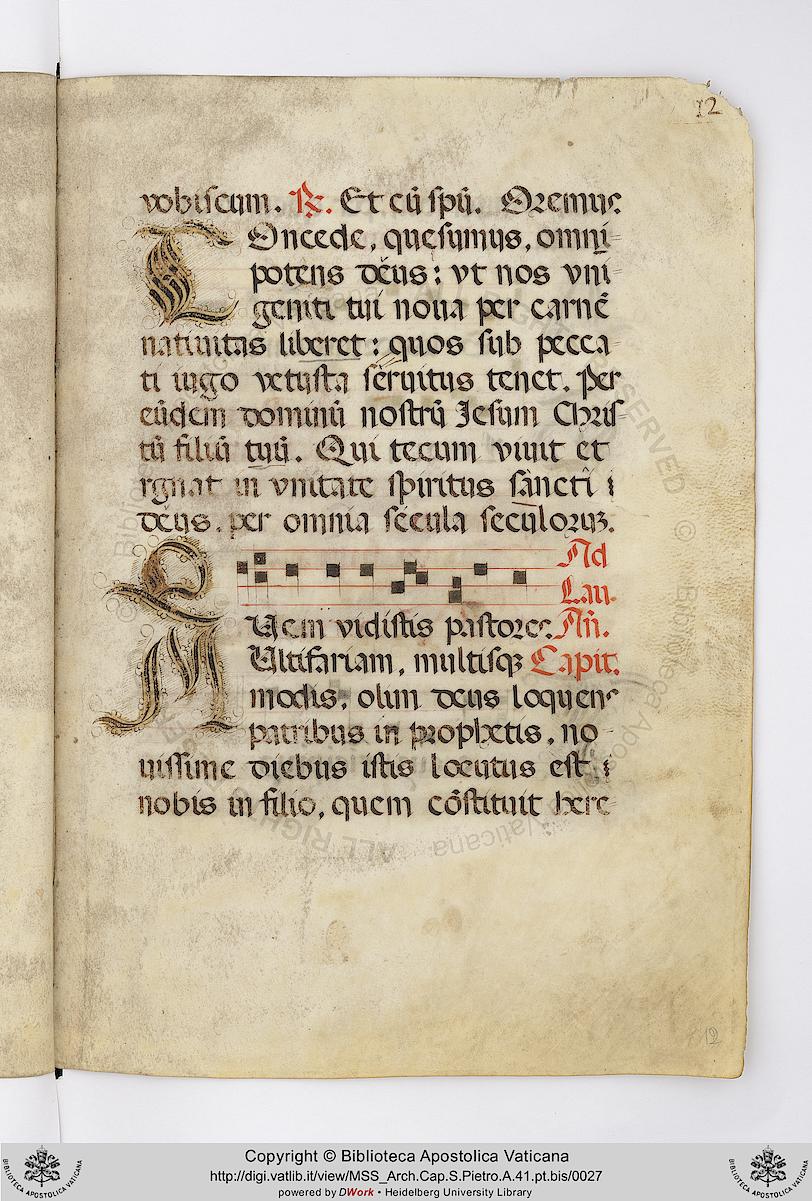 12
vobiscum. ℟. Et cū spū. Oremus
Concede, quesumus, omni
potens dēus: vt nos vni
geniti tui noua per carnē
natiuitas liberet: quos sub pecca
ti iugo vetusta seruitus tenet. Per
eūdem dominū nostrū Iesum Chris
tū filiū tuū. Qui tecum viuit et
rgnat in vnitate spiritus sancti i
dēus. per omnia sēcula seculorum.
Ad
Lau.
QVem vidistis pastores. Añ.
MVltifariam, multisq; Capit.
modis, olim deus loquens
patribus in prophetis, no
uissime diebus istis locutus est i
nobis in filio, quem cōstituit here
12
Copyright © Biblioteca Apostolica Vaticana
http://digi.vatlib.it/view/MSS_Arch.Cap.S.Pietro.A.41.pt.bis/0027
powered by DWork • Heidelberg University Library